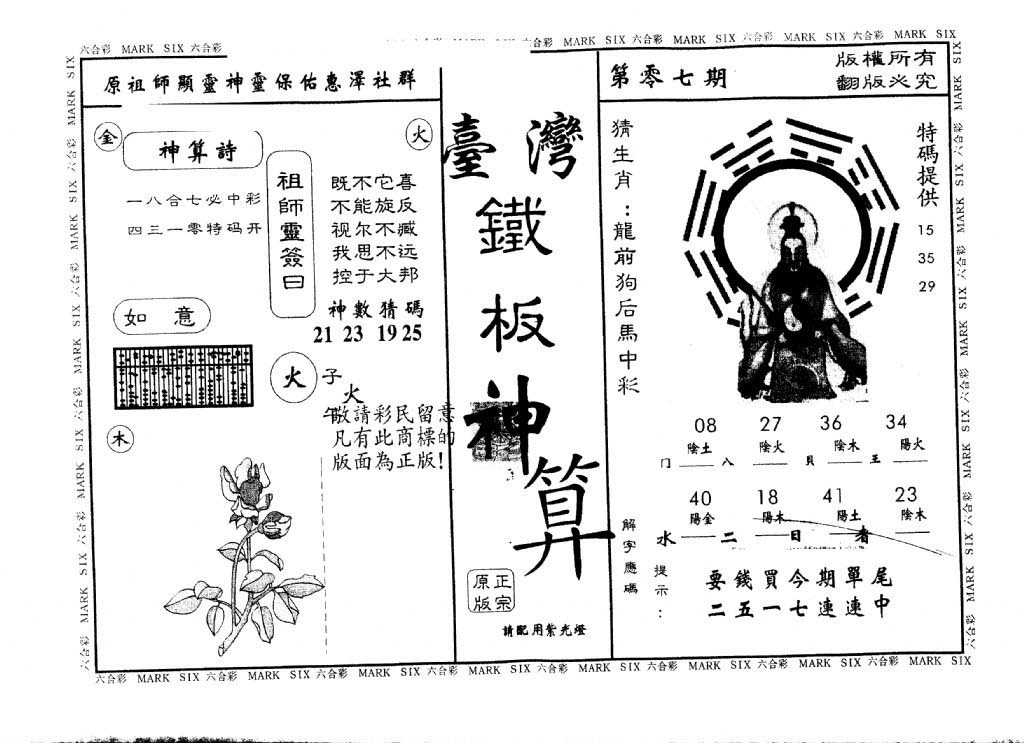 六合彩 MARK SIX 六合彩
六合彩 MARK SIX 六合彩 MARK SIX 六合彩 MARK SIX 六合彩 MARK SIX
原祖師顯靈神靈保佑惠澤社群
金
火
神算詩
一八合七必中彩
四三一零特码开
祖師靈簽曰
既不它喜
不能旋反
视尔不臧
我思不远
控于大邦
神數猜碼
21 23 19 25
如意
火
子
火
木
敬請彩民留意
凡有此商標的
版面為正版!
臺灣
鐵
板
神
算
正宗
原版
請配用紫光燈
第零七期
版權所有
翻版必究
猜生肖:龍前狗后馬中彩
特碼提供
15
35
29
08 27 36 34
陰土 陰火 陰木 陽火
门 八 貝 王
40 18 41 23
陽金 陽木 陽土 陰木
水 二 日 者
解字應碼
提示:
要錢買今期單尾
二五一七連連中
六合彩 MARK SIX 六合彩 MARK SIX 六合彩 MARK SIX 六合彩 MARK SIX 六合彩 MARK SIX 六合彩 MARK SIX 六合彩 MARK SIX 六合彩 MARK SIX